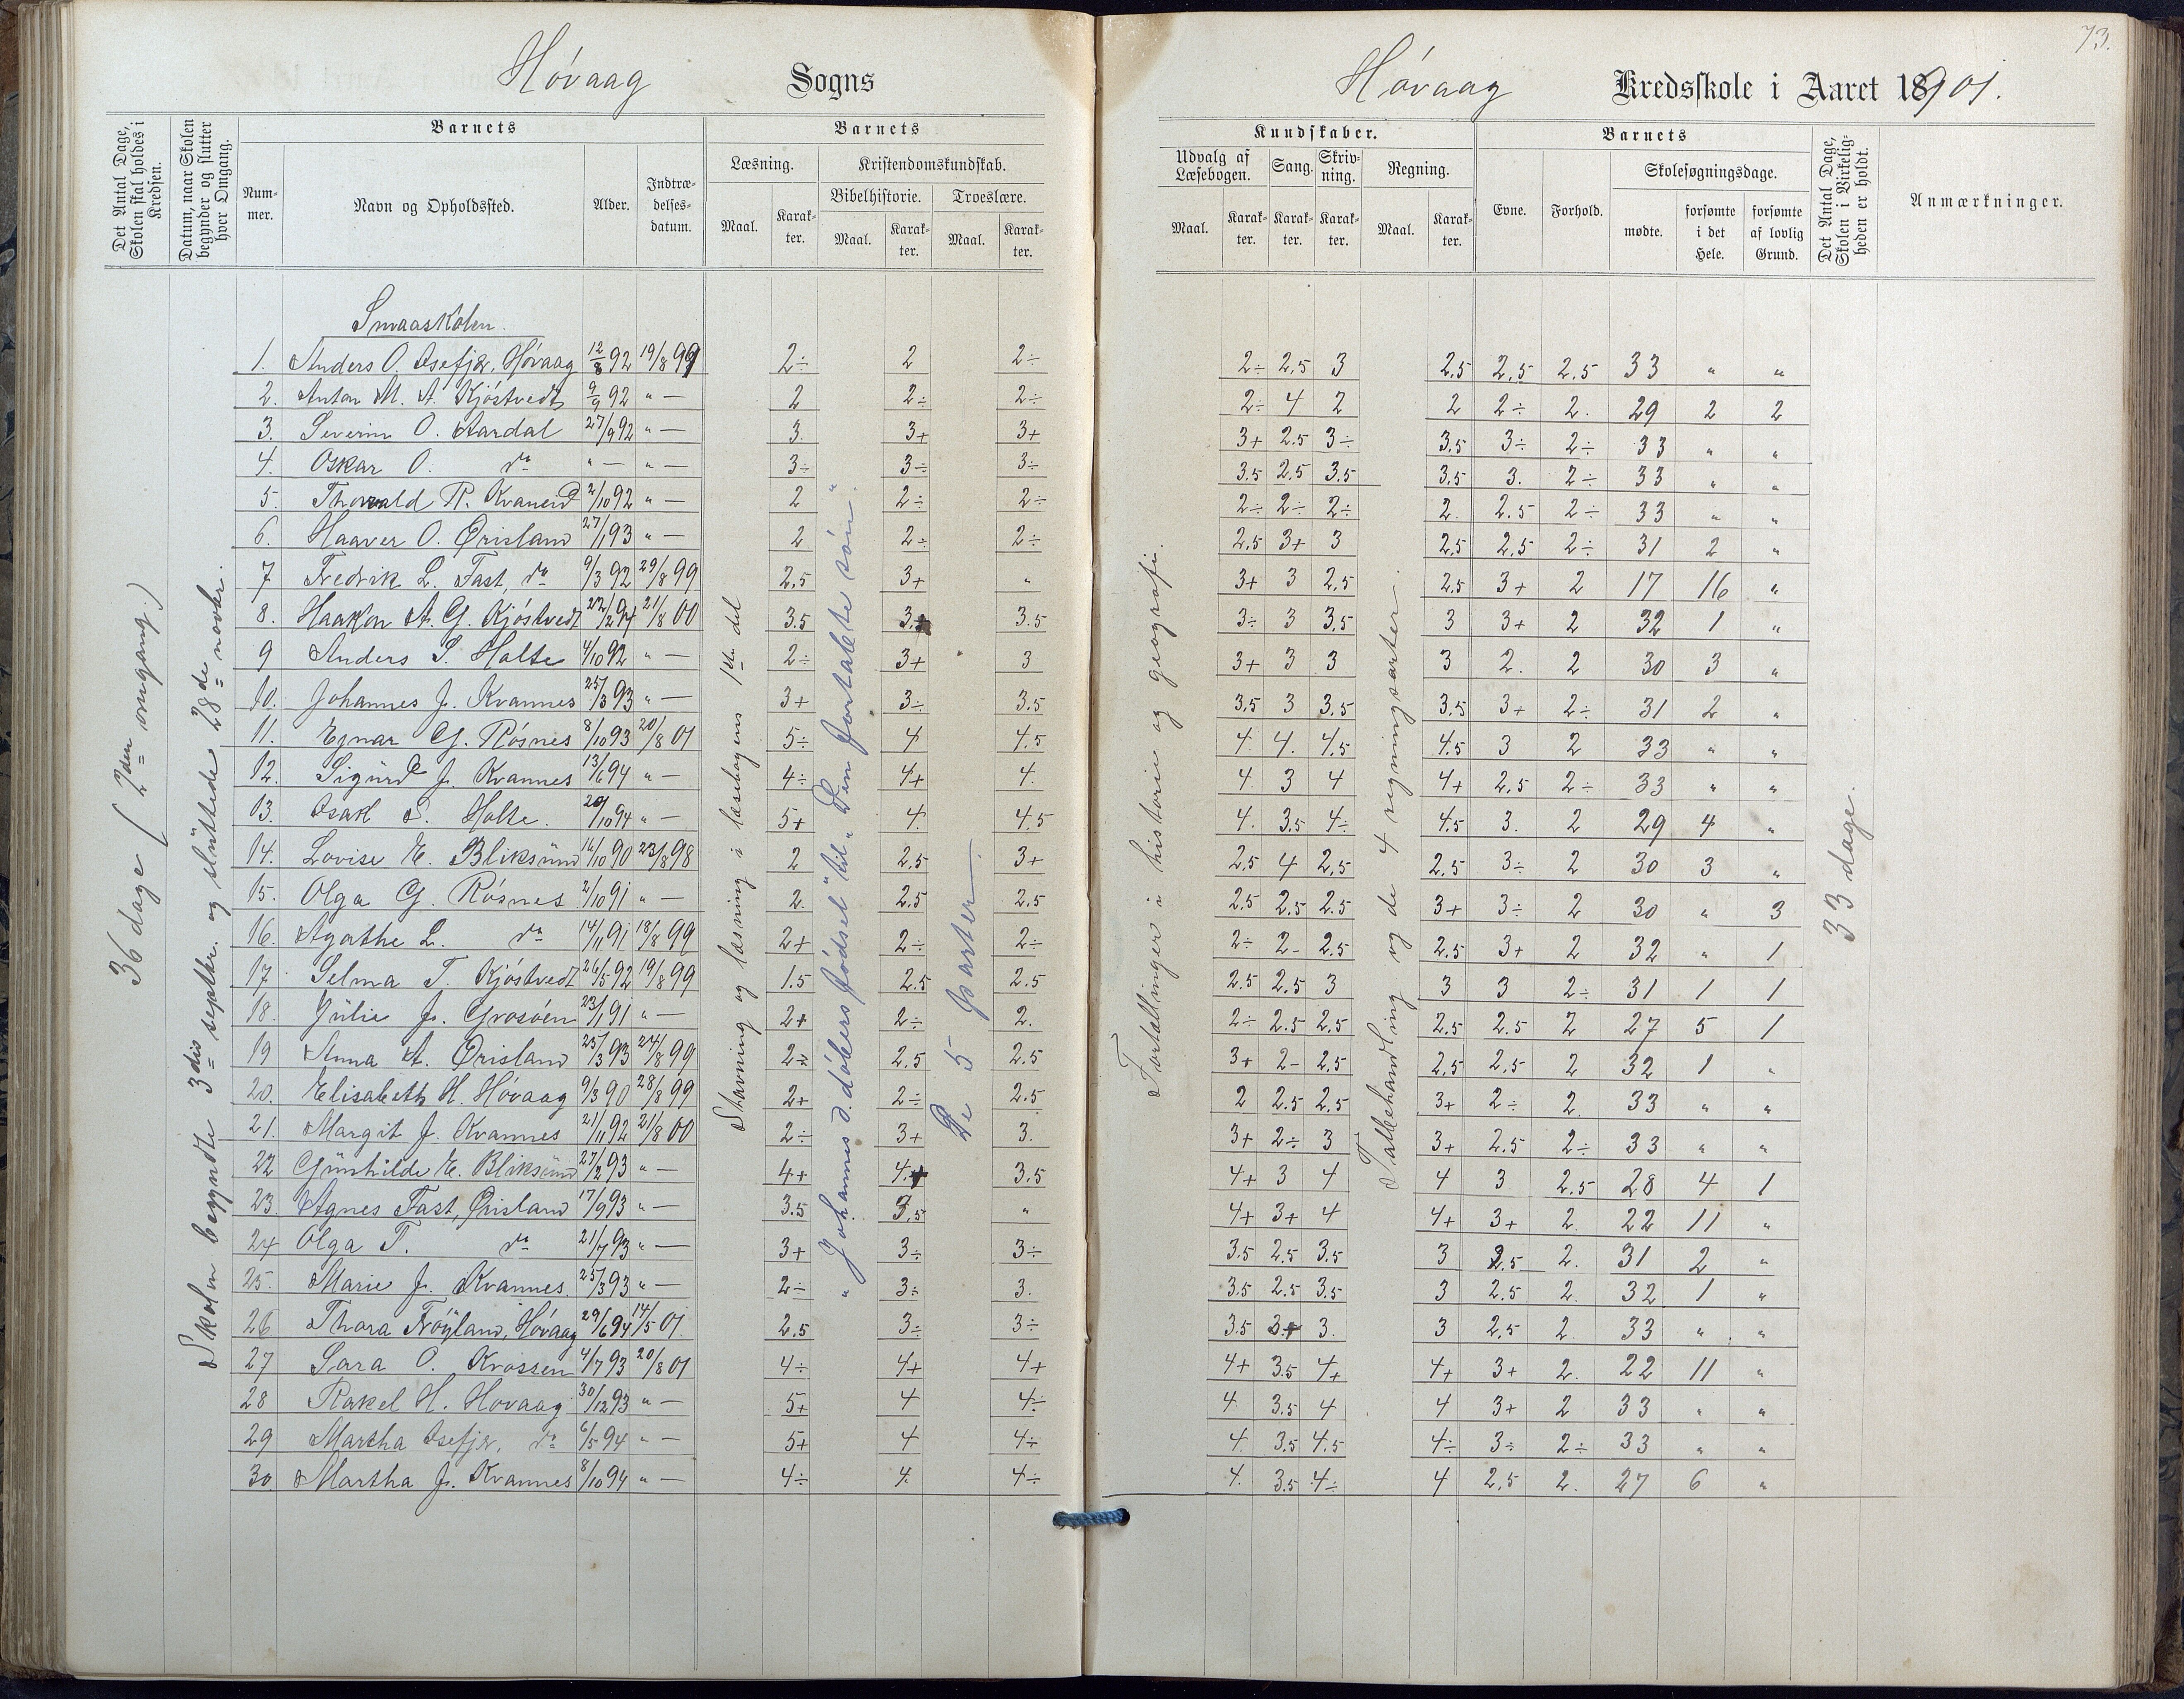 73.
Høvaag Sogns
Høvaag Kredsskole i Aaret 1901.
Det Antal Dage, Skolen skal holdes i Kredsen.
Datum, naar Skolen begynder og slutter hver Omgang.
Barnets
Nummer.
Navn og Opholdssted.
Alder.
Indtrædelsesdatum.
Barnets
Læsning.
Maal. Karakter.
Kristendomskundskab.
Bibelhistorie.
Maal. Karakter.
Troeslære.
Maal. Karakter.
Kundskaber.
Udvalg af Læsebogen.
Maal. Karakter.
Sang.
Karakter.
Skrivning.
Karakter.
Regning.
Maal. Karakter.
Barnets
Evne. Forhold.
Skolesøgningsdage.
mødte. forsømte i det Hele. forsømte af lovlig Grund.
Det Antal Dage, Skolen i Virkeligheden er holdt.
Anmærkninger.
36 dage (2den omgang.)
Skolen begyndte 3die septbr. og sluttede 28de novbr.
Stavning og læsning i læsebogens 1ste del
"Johannes d. døbers fødsel" til "Den fortabte søn".
De 5 parter
Fortællinger i historie og geografi.
Tallbehandling og de 4 regningsarter.
33 dage.
Smaaskolen.
1. Anders O. Osefjær, Høvaag 12/8 92 19/8 99 2÷ 2 2÷ 2÷ 2,5 3 2,5 2,5 2.5 33 " "
2. Anton M. A. Kjøstvedt 9/9 92 " — 2 2÷ 2÷ 2÷ 4 2 2 2÷ 2. 29 2 2
3. Severin O. Aardal 27/9 92 " — 3. 3+ 3+ 3+ 2.5 3÷ 3,5 3÷ 2÷ 33 " "
4. Oskar O. do " — " — 3÷ 3÷ 3÷ 3.5 2.5 3.5 3.5 3. 2÷ 33 " "
5. Thorvald R. Kvanerd 2/10 92 " — 2 2÷ 2÷ 2÷ 2÷ 2÷ 2. 2.5 2÷ 33 " "
6. Haaver O. Ørisland 27/1 93 " — 2 2÷ 2÷ 2.5 3+ 3 2,5 2,5 2÷ 31 2 "
7 Fredrik L. Fast, do 9/3 92 29/8 99 2,5 3+ " 3+ 3 2,5 2,5 3+ 2 17 16 "
8. Haakon A. G. Kjøstvedt 21/8 00 3.5 3+ 3.5 3÷ 3 3,5 3 3+ 2 32 1 "
9 Anders S. Holte 4/10 92 " — 2÷ 3+ 3 3+ 3 3 3 2. 2 30 3 "
10. Johannes J. Kvannes 25/3 93 " — 3+ 3÷ 3.5 3,5 3 3,5 3,5 3+ 2÷ 31 2 "
11. Egnar G. Røsnes 8/10 93 20/8 01 5÷ 4 4.5 4. 4. 4,5 4.5 3 2 33 " "
12. Sigurd J. Kvannes 13/6 94 " — 4÷ 4+ 4. 4. 3 4 4+ 2,5 2÷ 33 " "
13. Isak S. Holte. 20/10 94 " — 5+ 4. 4.5 4. 3.5 4÷ 4.5 3. 2 29 4 "
14. Lovise E. Bliksund 16/10 90 23/8 98 2 2,5 3+ 2,5 4 2,5 2,5 3÷ 2 30 3 "
15. Olga G. Røsnes 2/10 91 " — 2. 2.5 2.5 2.5 2.5 2.5 3+ 3÷ 2 30 " 3
16. Agathe L. do 14/11 91 18/8 99 2+ 2÷ 2÷ 2÷ 2- 2.5 2.5 3+ 2 32 " 1
17. Selma T. Kjøstvedt 26/5 92 19/8 99 1.5 2.5 2.5 2.5 2.5 3 3 3 2÷ 31 1 1
18. Julie J. Grosøen 23/1 91 " — 2+ 2÷ 2. 2÷ 2.5 2.5 2.5 2.5 2 27 5 1
19 Anna A. Ørisland 25/3 93 24/8 99 2÷ 2.5 2.5 3+ 2- 2.5 2.5 2.5 2 32 1 "
20. Elisabeth H. Høvaag 9/3 90 28/8 99 2+ 2÷ 2.5 2 2.5 2.5 3+ 2÷ 2 33 " "
21. Margit J. Kvannes 21/11 92 21/8 00 2÷ 3+ 3. 3+ 2÷ 3 3+ 2.5 2÷ 33 " "
22 Gunhilde E. Bliksund 27/2 93 " — 4+ 4+ 3.5 4+ 3 4 4 3 2.5 28 4 1
23. Agnes Fast, Ørisland 17/9 93 " — 3.5 3.5 " 4+ 3+ 4 4+ 3+ 2. 22 11 "
24 Olga T. do 21/7 93 " — 3+ 3÷ 3÷ 3.5 2.5 3.5 3 2.5 2. 31 2 "
25. Marie J. Kvannes. 25/3 93 " — 2÷ 3÷ 3. 3.5 2.5 3.5 3 2.5 2. 32 1 "
26 Thora Frøyland, Høvaag 29/6 94 14/5 01. 2.5 3÷ 3÷ 3.5 3+ 3. 3 2,5 2. 33 " "
27 Sara O. Krossen 4/7 93 20/8 01 4÷ 4+ 4+ 4+ 3.5 4+ 4+ 3+ 2. 22 11 "
28 Rakel H. Hovaag 30/12 93 " — 5+ 4 4÷ 4 3.5 4 4 3+ 2 33 " "
29 Martha Osefjær, do 6/5 94 " — 5+ 4 4÷ 4. 3.5 4.5 4÷ 3÷ 2÷ 33 " "
30 Martha J. Kvannes 8/10 94 " — 4÷ 4. 4÷ 4. 3.5 4÷ 4 2,5 2. 27 6 "